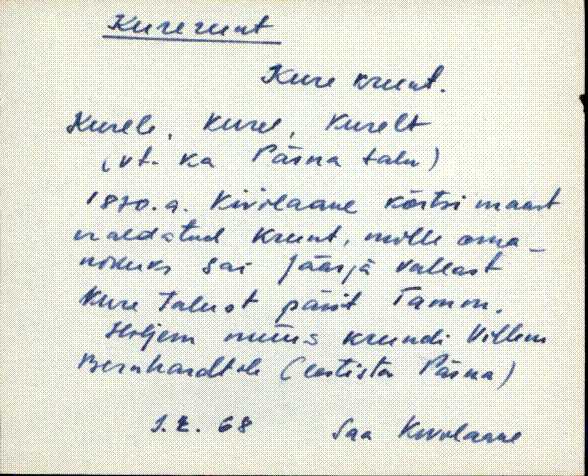 Kurekrunt
Kure krunt.
Kurele, Kurel, Kurelt
(vt. ka Pärna talu)
1870. a. Kivilaane kõrtsi maast
eraldatud krunt, mille oma-
nikuks sai Jäärja vallast
Kure talust pärit Tamm.
Hiljem müüs krundi Villem
Bernhardtole (eestista Pärna)
1. 2. 68 Saa Kivilaane